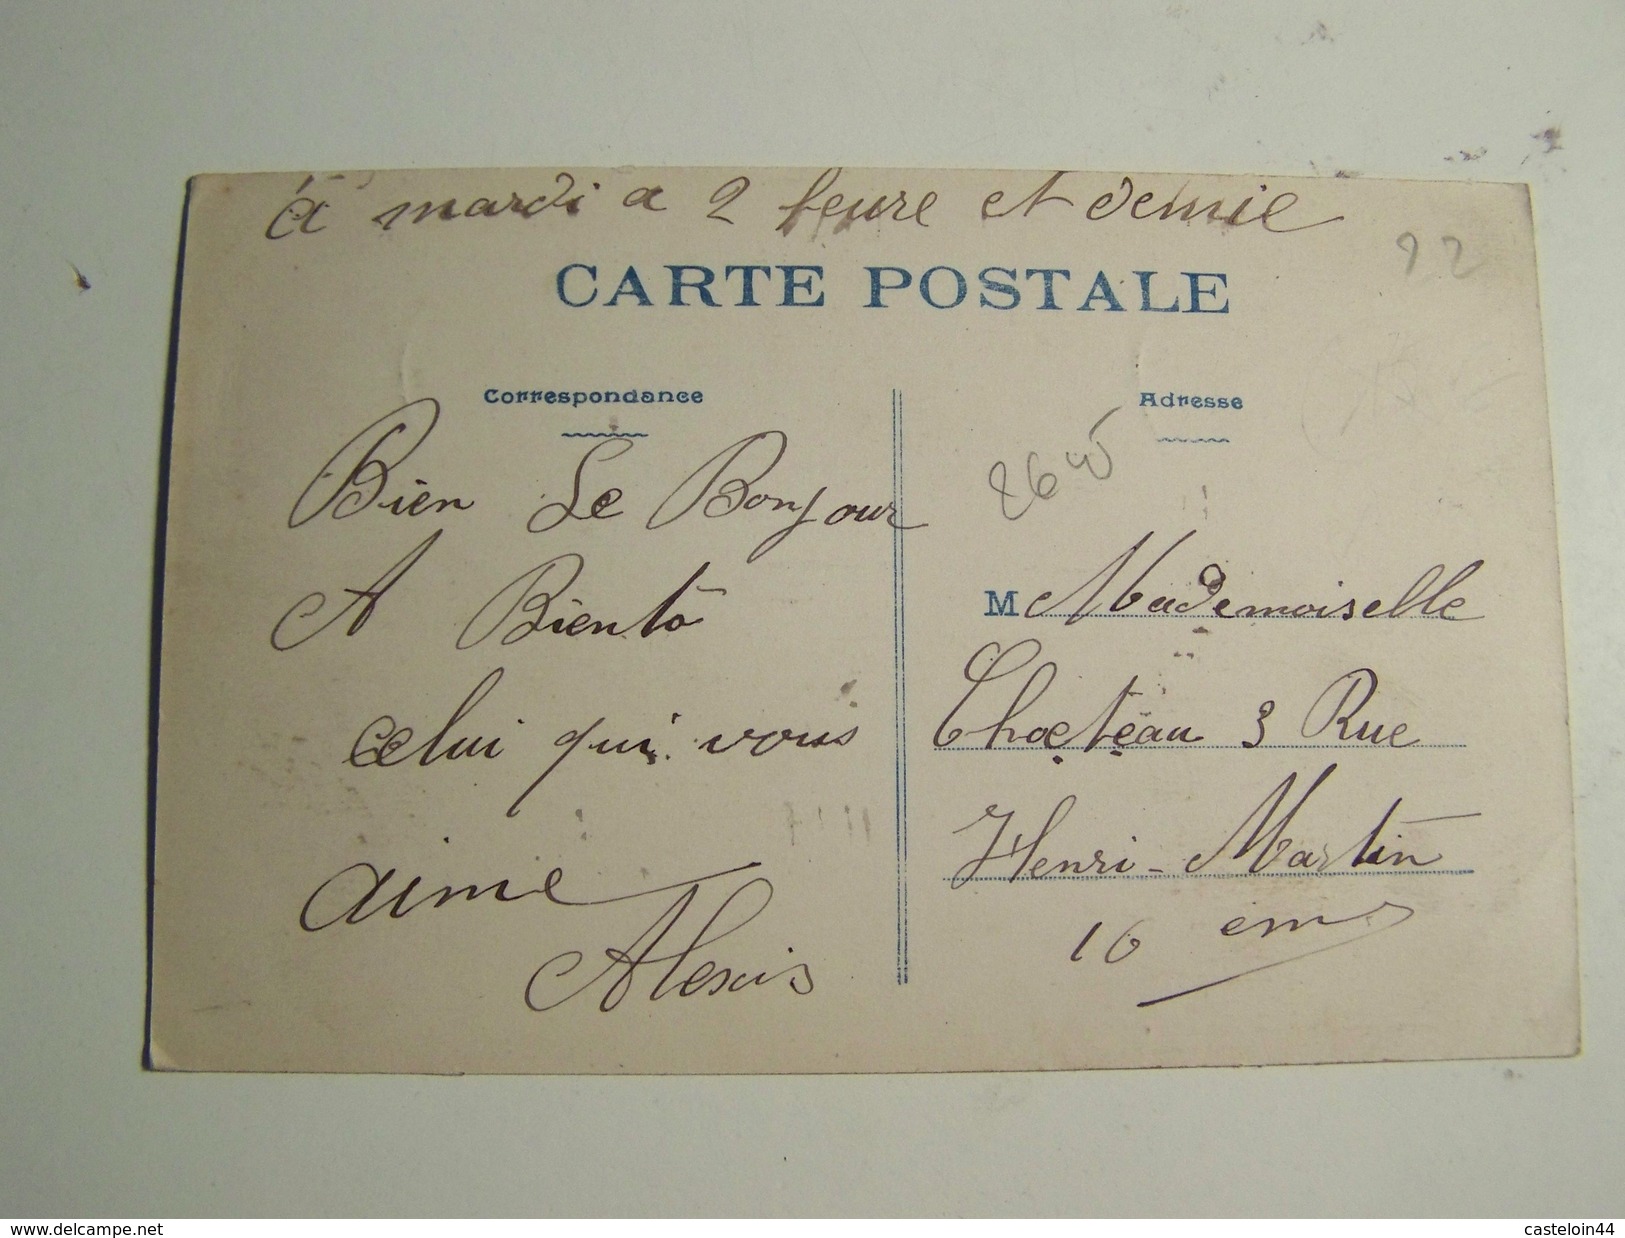 à mardi a 2 heure et demie
92
CARTE POSTALE
Correspondance
Bien Le Bonjour
A Biento
celui qui vous
aime
Alexis
Adresse
M Mademoiselle
Choeteau 3 Rue
Henri-Martin
16 eme
www.delcampe.net
casteloin44